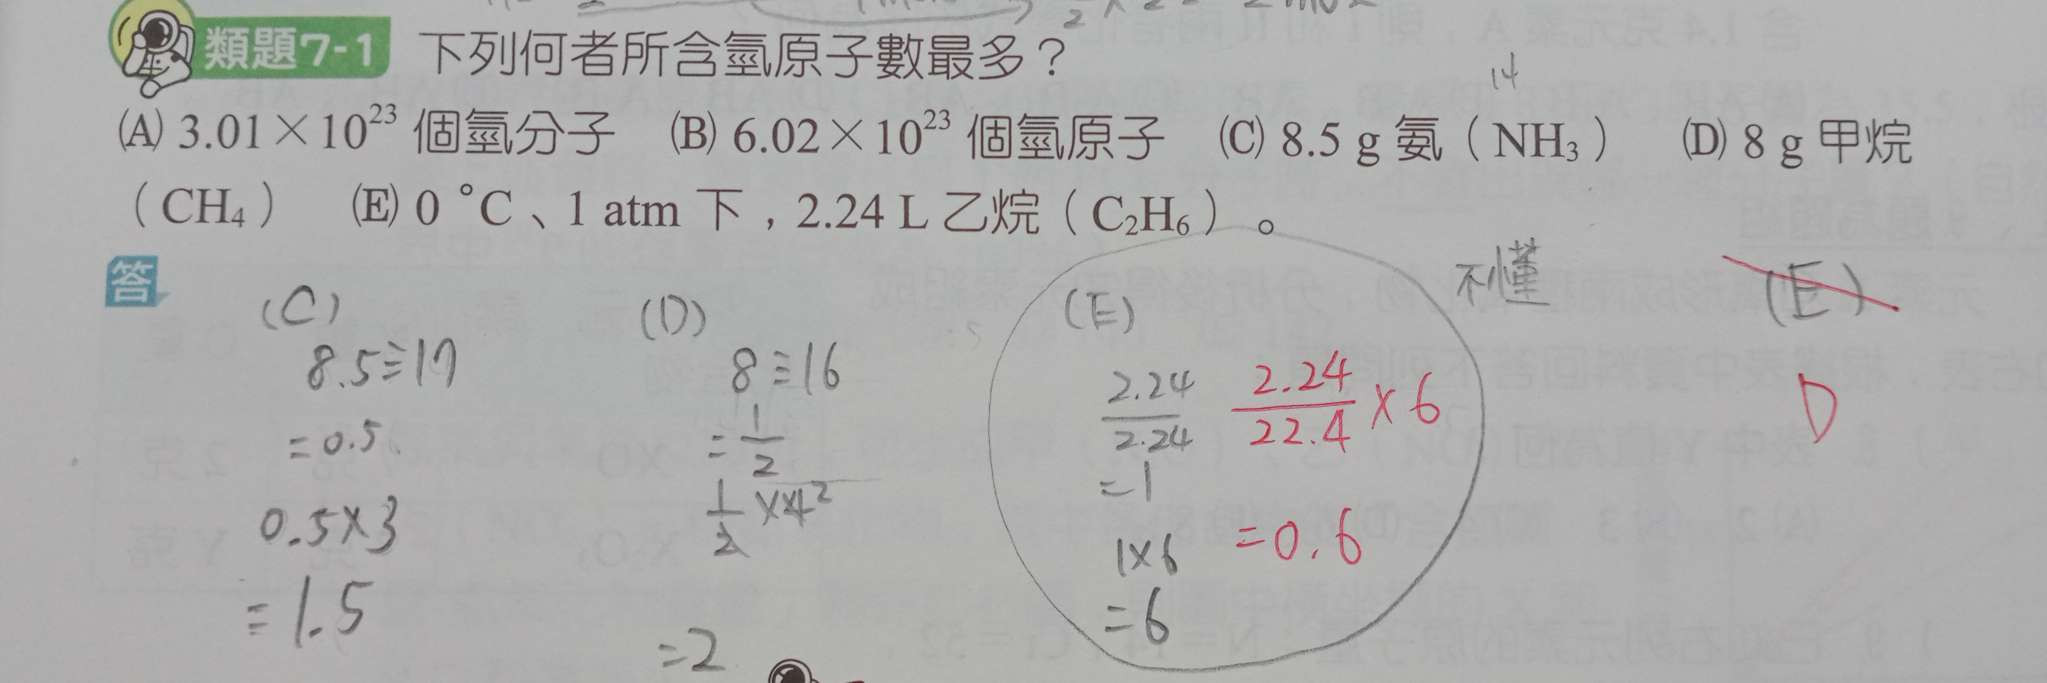 類題7-1 下列何者所含氫原子數最多？
14
(A) 3.01×10²³ 個氫分子 (B) 6.02×10²³ 個氫原子 (C) 8.5 g 氨（NH₃） (D) 8 g 甲烷
（CH₄） (E) 0 °C、1 atm 下，2.24 L 乙烷（C₂H₆）。
答
(C)
8.5÷17
=0.5
0.5×3
=1.5
(D)
8÷16
=1/2
1/2××4²
=2
(E)
2.24/2.24
=1
1×6
=6
2.24/22.4×6
=0.6
不懂
(E)
D